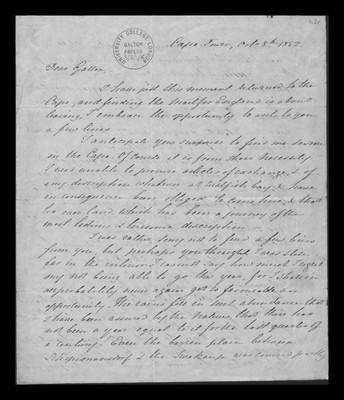 Cape Town, Oct. 8th 1852.
UNIVERSITY COLLEGE LONDON
GALTON PAPERS
Dear Galton
I have just this moment returned to the
Cape, and finding the Mail for England is about
leaving, I embrace the opportunity to write to you
a few lines
I anticipate your surprise to find me
in the Cape. Of course it is from sheer necessity
I was unable to procure articles of exchange & of
any description whatever at Walfish bay, & have
in consequence been obliged to come here, & that
too over land which has been a journey of the
most tedious & tiresome description
I was rather sorry not to find a few lines
from you but perhaps you thought I was still
far in the interior. I cannot say how much I regret
my not being able to go this year, for I shall in
all probability never again get so favourable an
opportunity. The rains fell in such abundance that
I have been assured by the Natives, that there has
not been a year equal to it for the last quarter of
a century. Even the barren plain between
Scheppmansdorf & the Swakaup was covered